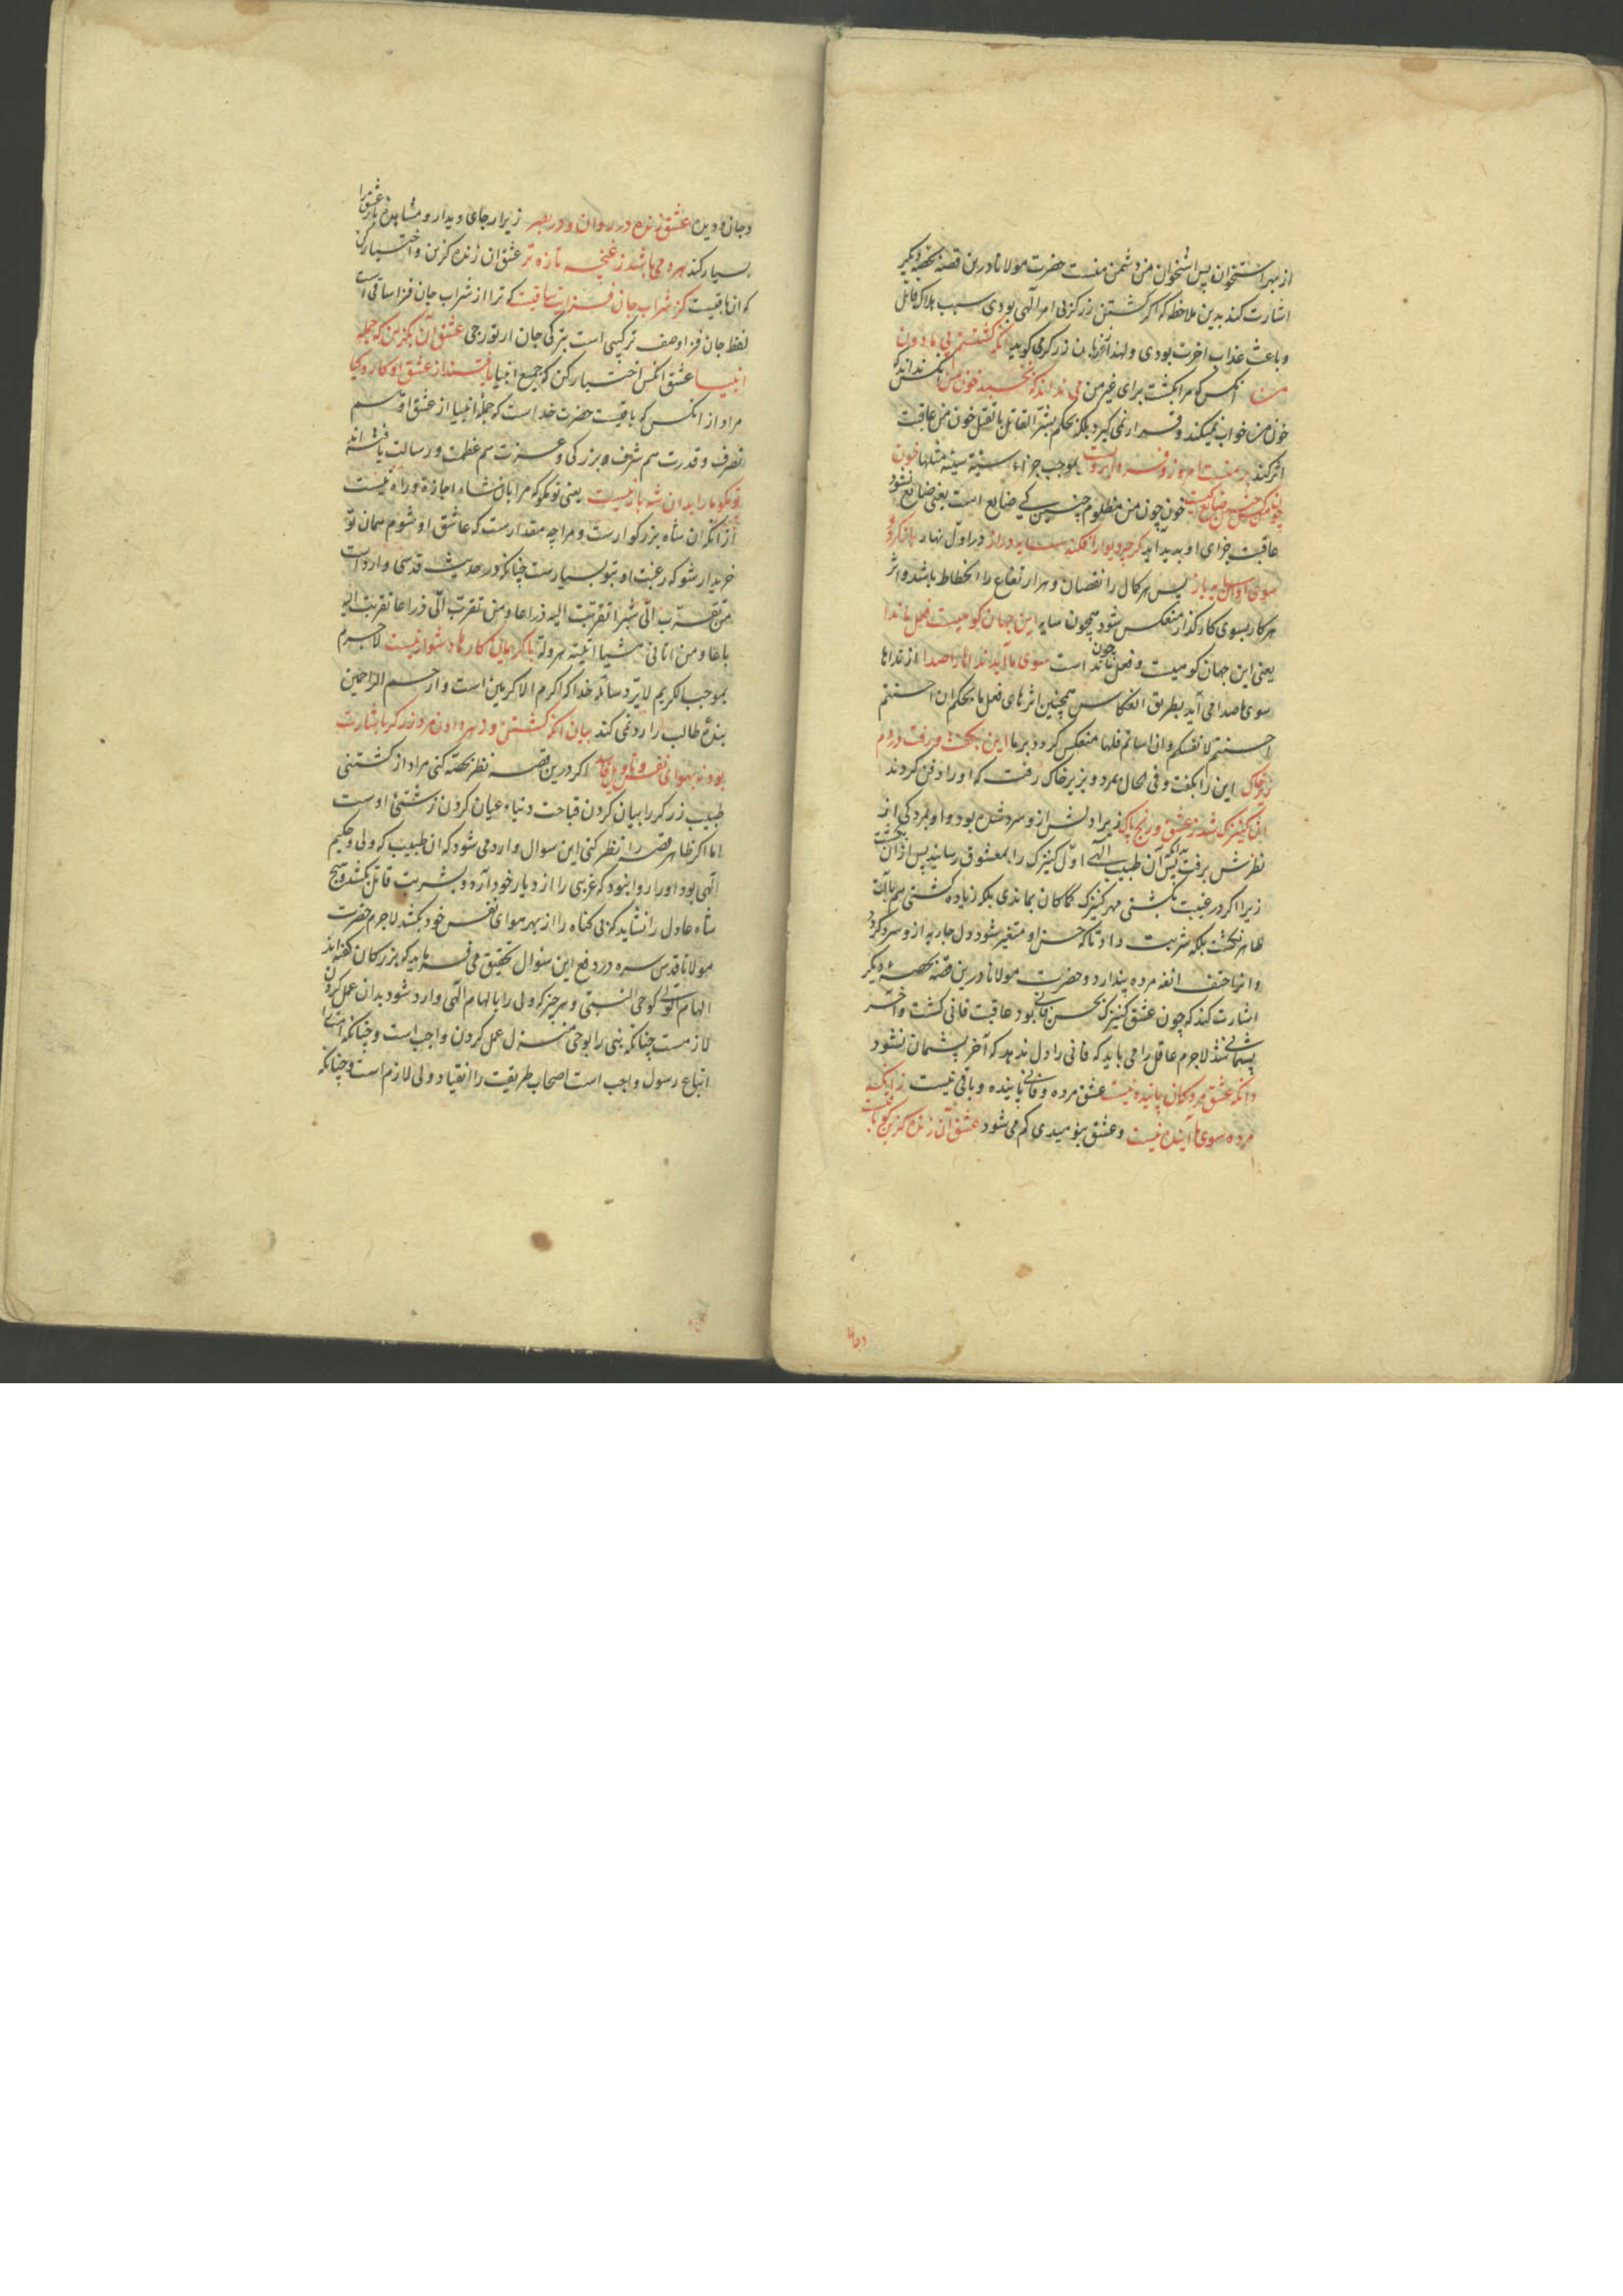 از بهر استخوان پس استخوان من دشمن منست حضرت مولانا درین قصه بحصهٔ دیگر
اشارت کند بدین ملاحظه که اگر کشتن زرگر بی امر الهی بودی سبب هلاک قاتل
و باعث عذاب آخرت بودی و لهذا از زبان زرگر می گوید آنکه کشتستم پی مادون
من آنکس که مرا بکشت برای غیر من می نداند که نخسبد خون من آنکس نداند که
خون من خواب نمیکند و قرار نمی گیرد بلکه بحکم بشر القاتل بالقتل خون من عاقبت
اثر کند بر منست امروز و فردا بر ویست بموجب جزاء سیئة سیئة مثلها خون
چون من کس چنین ضایع کیست خون چون من مظلوم چنین کی ضایع است یعنی ضایع نشود
عاقبت جزای او پدید آید گرچه دیوار افکند سایه دراز در اول نهار باز گردد
سوی او آن سایه باز پس هر کمال را نقصان و هر ارتفاع را انحطاط باشد و اثر
هر کار بسوی کارگذار منعکس شود همچون سایه این جهان کوهست و فعل ما ندا
یعنی این جهان کوهیست و فعل ما چون ندا است سوی ما آید نداها را صدا از نداها
سوی ما صدا می آید بطریق انعکاس همچنین اثرهای فعل ما بحکم ان احسنتم
احسنتم لانفسکم وان اساتم فلها منعکس گردد بر ما این بگفت و رفت در دم
زیر خاک این را بگفت و فی الحال بمرد و بزیر خاک رفت که او را دفن کردند
آن کنیزک شد ز عشق و رنج پاک زیرا دلش از و سرد شده بود و او بمردگی از
نظرش برفت بدانکه آن طبیب الهی اول کنیزک را بمعشوق رسانید پس از آن بکشت
زیرا اگر در غیبت بکشتی مهر کنیزک کماکان بماندی بلکه زیاده گشتی
ظاهر نکشت بلکه شربت داد تا که حسن او متغیر شود و دل جاریه از و سرد گردد
و انها حتف انفه مرده پندارد و حضرت مولانا درین قصه بحصهٔ دیگر
اشارت کند که چون عشق کنیزک بحسن فانی بود عاقبت فانی گشت و آخر
پشمانی شد لاجرم عاقل را می باید که فانی را دل ندهد که آخر پشمان نشود
دانکه عشق مردگان پاینده نیست عشق مرده و فانی پاینده و باقی نیست زانکه
مرده سوی ما آینده نیست و عشق بنومیدی کم می شود عشق آن زنده گزین کو باقیست
وجان و دیده عشق زنده در روان و در بصر زیرا رجای دیدار و مشاهدهٔ یار عشق را
بسیار کند هر دمی باشد ز غنچه تازه تر عشق آن زنده گزین و اختیار کن
که آن باقیست کز شراب جان فزایت ساقیست که ترا از شراب جان فزا ساقی است
لفظ جان فزا وصف ترکیبی است بترکی جان ارتورجی عشق آن بگزین که جمله
انبیا عشق آنکس اختیار کن که جمیع انبیا یافتند از عشق او کار و کیا
مراد از آنکس که باقیست حضرت خداست که جملهٔ انبیا از عشق او هم
تصرف و قدرت هم شرف و بزرگی و عزت هم عظمت و رسالت یافته اند
تو مگو ما را بدان شه بار نیست یعنی تو مگو که مرا بآن شاه اجازه و راه نیست
از آنکه آن شاه بزرگوارست و مرا چه مقدارست که عاشق او شوم همان تو
خریدار شو که رغبت او بتو بسیارست چنانکه در حدیث قدسی وارد است
من تقرب الی شبرا تقربت الیه ذراعا ومن تقرب الی ذراعا تقربت الیه
باعا ومن اتانی مشیا اتیته هرولة با کریمان کارها دشوار نیست لاجرم
بموجب الکریم لا یرد سائله خدا که اکرم الاکرمین است و ارحم الراحمین
بندهٔ طالب را رد نمی کند بیان آنکه کشتن و زهر دادن مرد زرگر باشارت
بود نه بهوای نفس و تاویل فاسد اگر درین قصه نظر بحصه کنی مراد از کشتنی
طبیب زرگر را بیان کردن قباحت دنیا و عیان کردن زشتئ اوست
اما اگر ظاهر قصه را نظر کنی این سوال وارد می شود که آن طبیب که ولی و حکیم
الهی بود او را روا نبود که غریبی را از دیار خود آرد و بشربت قاتل بکشد و هیچ
شاه عادل را نشاید که بی گناه را از بهر هوای نفس خود بکشد لاجرم حضرت
مولانا قدس سره در دفع این سؤال تحقیق می فرماید که بزرگان گفته اند
الهام الولی کوحی النبی و هر چیز که ولی را بالهام الهی وارد شود بدان عمل کردن
لازمست چنانکه نبی را بوحی منزل عمل کردن واجب است و چنانکه امت را
اتباع رسول واجب است اصحاب طریقت را انقیاد ولی لازم است و چنانکه
وجان